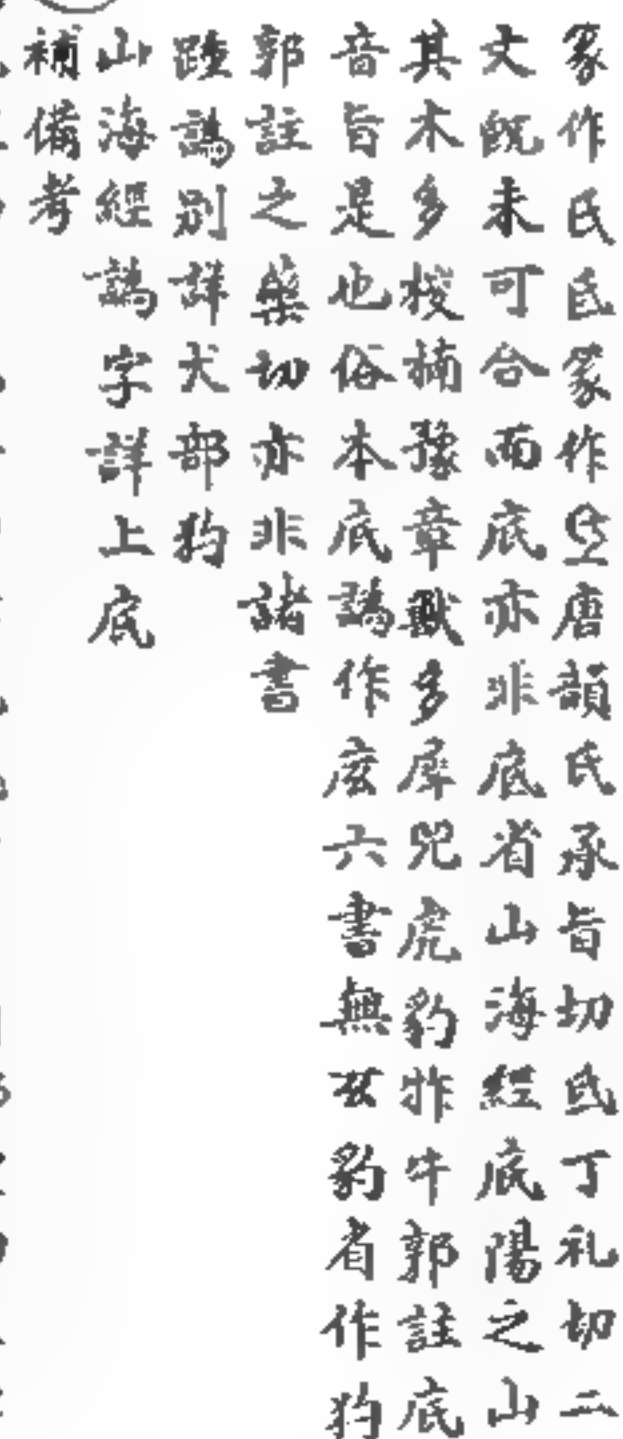 篆作氏氐篆作𢆰唐韻氏承旨切氐丁礼切二
文旣未可合而底亦非底省山海經底陽之山
其木多椶楠豫章獸多犀兕虎豹㸲牛郭註底
音旨是也俗本底譌作庢六書無犮豹省作犳
郭註之藥切亦非諸書
踵譌別詳犬部犳
山海經譌字詳上底
補備考